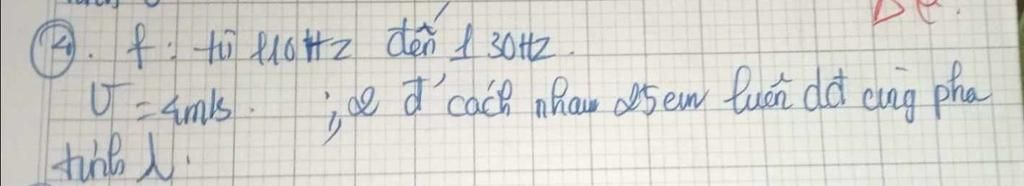 4. f: từ 110Hz đến 130Hz.
v = 4m/s. ; 2 đ' cách nhau 25cm luôn dđ cùng pha
tính λ.